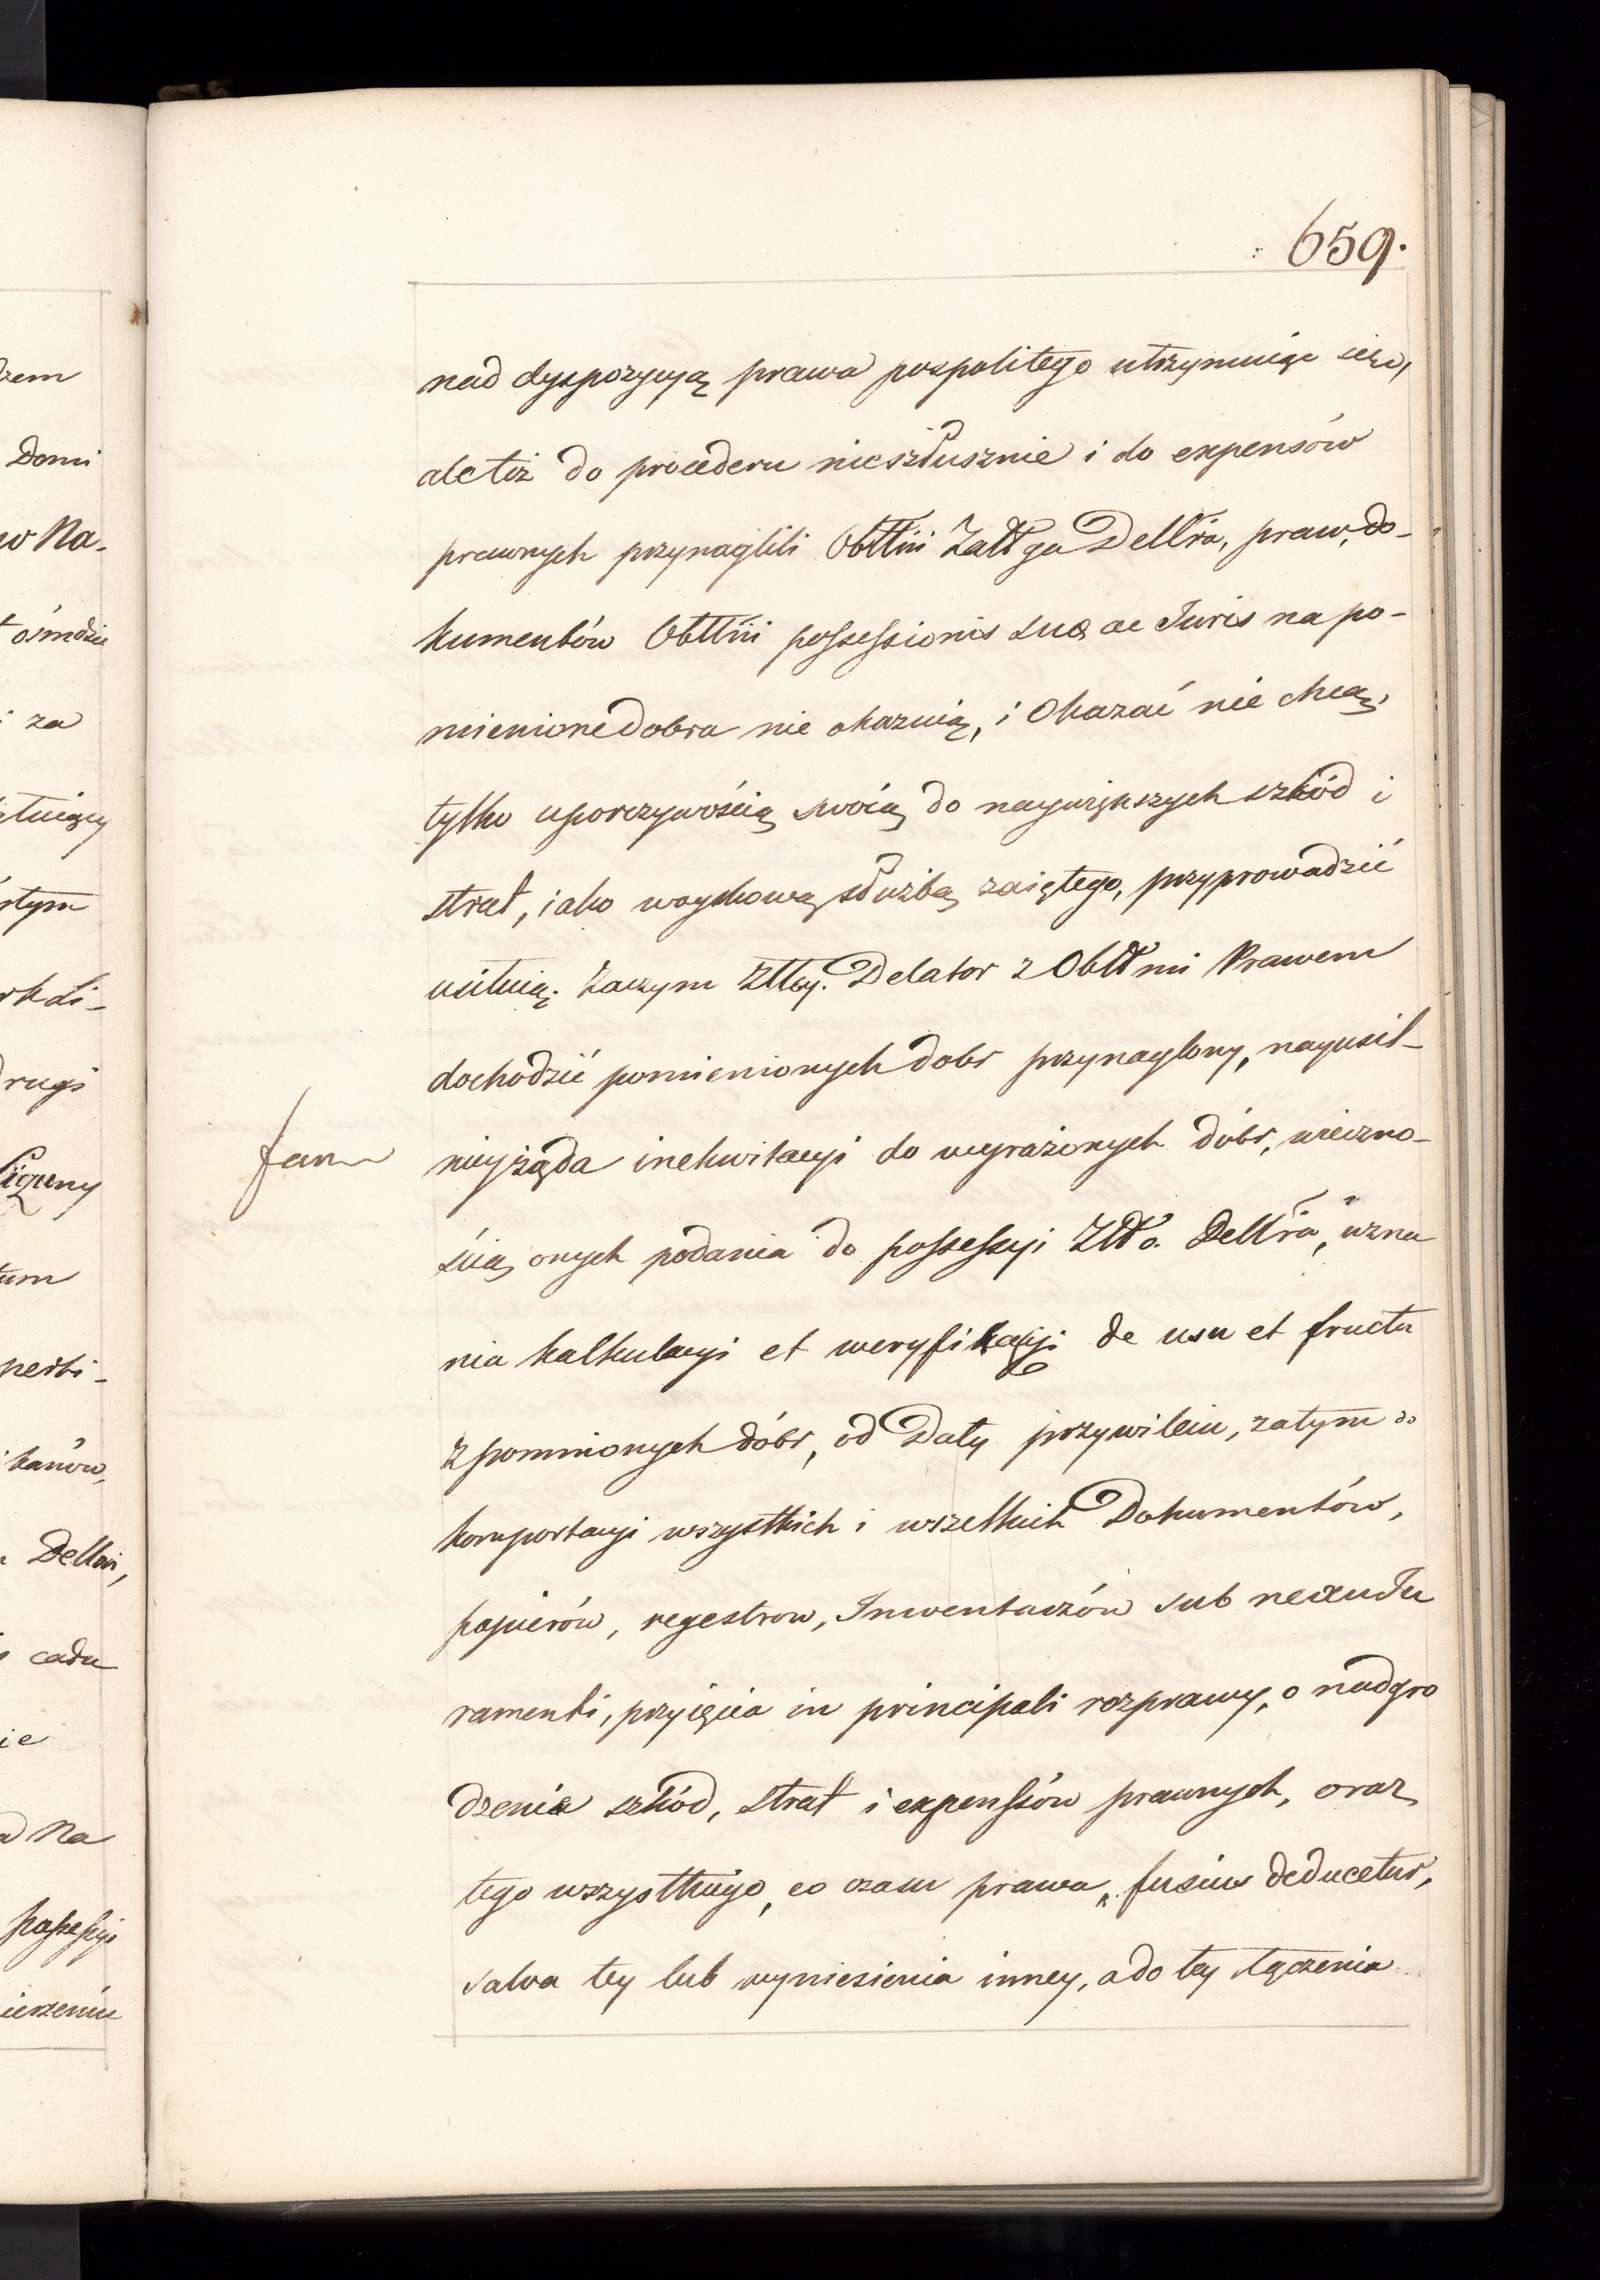 659.
nad dyspozycyą prawa pospolitego utrzymuiąc
ale też do procederu niesłusznie i do expensów
prawnych przynaglili Obttłii Załł ga Dellra, praw, do-
kumentów Obttłii possessionis suæ ac Juris na po-
mienione dobra nie okazuią, i Okazać nie chcą,
tylko uporczywością swoią do naywiększych szkód i
strat, iako woyskową służbą zaiętego, przyprowadzić
usiłuią. Zaczym Delator z Obłł mi Prawem
dochodzić pomienionych dobr przynaglony, nayusil-
niey żąda inekwitacyi do wyrażonych dóbr, wieczno-
ścią onych podania do possessyi Złł o. Dellra, uzna
nia kalkulacyi et weryfikacyi de usu et fructu
z pomnionych dóbr, od Daty przywileiu, zatym do
komportacyi wszystkich i wszelkich Dokumentów,
papierów, regestrow, Inwentarzów sub nexu Ju
ramenti, przyięcia in principali rozprawy, o nadgro
dzenia szkód, strat i expenssów prawnych, oraz
tego wszystkiego, co czasu prawa, fusius deducetur,
salva tey lub wyniesienia inney, a do tey łączenia
dzem
Domi
w Na-
ośmdzie
i za
stym
Li-
drugi
tum
Dellori,
cadu
ie
Na
possessyi